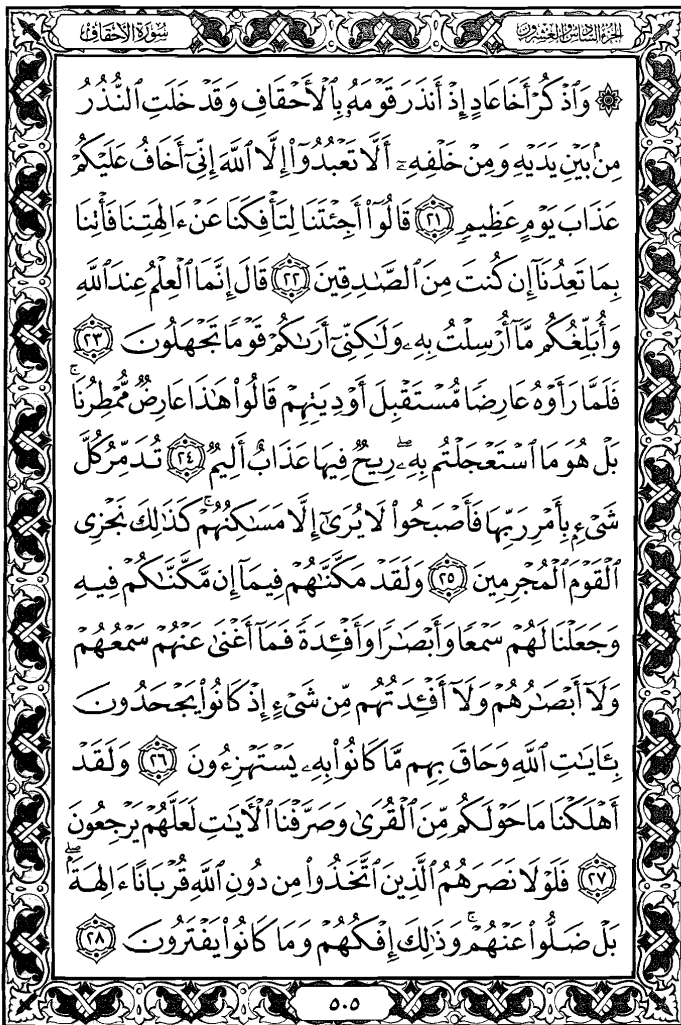 سُورَةُ الأَحْقَافِ
الجزء السادس والعشرون
۞ وَٱذْكُرْ أَخَا عَادٍ إِذْ أَنذَرَ قَوْمَهُۥ بِٱلْأَحْقَافِ وَقَدْ خَلَتِ ٱلنُّذُرُ
مِنۢ بَيْنِ يَدَيْهِ وَمِنْ خَلْفِهِۦٓ أَلَّا تَعْبُدُوٓا۟ إِلَّا ٱللَّهَ إِنِّىٓ أَخَافُ عَلَيْكُمْ
عَذَابَ يَوْمٍ عَظِيمٍ ٢١ قَالُوٓا۟ أَجِئْتَنَا لِتَأْفِكَنَا عَنْ ءَالِهَتِنَا فَأْتِنَا
بِمَا تَعِدُنَآ إِن كُنتَ مِنَ ٱلصَّـٰدِقِينَ ٢٢ قَالَ إِنَّمَا ٱلْعِلْمُ عِندَ ٱللَّهِ
وَأُبَلِّغُكُم مَّآ أُرْسِلْتُ بِهِۦ وَلَـٰكِنِّىٓ أَرَىٰكُمْ قَوْمًا تَجْهَلُونَ ٢٣
فَلَمَّا رَأَوْهُ عَارِضًا مُّسْتَقْبِلَ أَوْدِيَتِهِمْ قَالُوا۟ هَـٰذَا عَارِضٌ مُّمْطِرُنَا ۚ
بَلْ هُوَ مَا ٱسْتَعْجَلْتُم بِهِۦ ۖ رِيحٌ فِيهَا عَذَابٌ أَلِيمٌ ٢٤ تُدَمِّرُ كُلَّ
شَىْءٍۭ بِأَمْرِ رَبِّهَا فَأَصْبَحُوا۟ لَا يُرَىٰٓ إِلَّا مَسَـٰكِنُهُمْ ۚ كَذَٰلِكَ نَجْزِى
ٱلْقَوْمَ ٱلْمُجْرِمِينَ ٢٥ وَلَقَدْ مَكَّنَّـٰهُمْ فِيمَآ إِن مَّكَّنَّـٰكُمْ فِيهِ
وَجَعَلْنَا لَهُمْ سَمْعًا وَأَبْصَـٰرًا وَأَفْـِٔدَةً فَمَآ أَغْنَىٰ عَنْهُمْ سَمْعُهُمْ
وَلَآ أَبْصَـٰرُهُمْ وَلَآ أَفْـِٔدَتُهُم مِّن شَىْءٍ إِذْ كَانُوا۟ يَجْحَدُونَ
بِـَٔايَـٰتِ ٱللَّهِ وَحَاقَ بِهِم مَّا كَانُوا۟ بِهِۦ يَسْتَهْزِءُونَ ٢٦ وَلَقَدْ
أَهْلَكْنَا مَا حَوْلَكُم مِّنَ ٱلْقُرَىٰ وَصَرَّفْنَا ٱلْـَٔايَـٰتِ لَعَلَّهُمْ يَرْجِعُونَ
٢٧ فَلَوْلَا نَصَرَهُمُ ٱلَّذِينَ ٱتَّخَذُوا۟ مِن دُونِ ٱللَّهِ قُرْبَانًا ءَالِهَةًۢ ۖ
بَلْ ضَلُّوا۟ عَنْهُمْ ۚ وَذَٰلِكَ إِفْكُهُمْ وَمَا كَانُوا۟ يَفْتَرُونَ ٢٨
٥٠٥